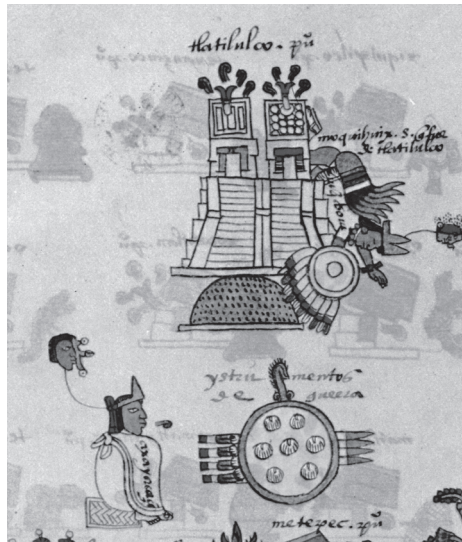 tlatilulco. pũ
moquihuix. s. 
de tlatilulco
ystru mentos
de guerra
axayacaçi
metepec. pũ